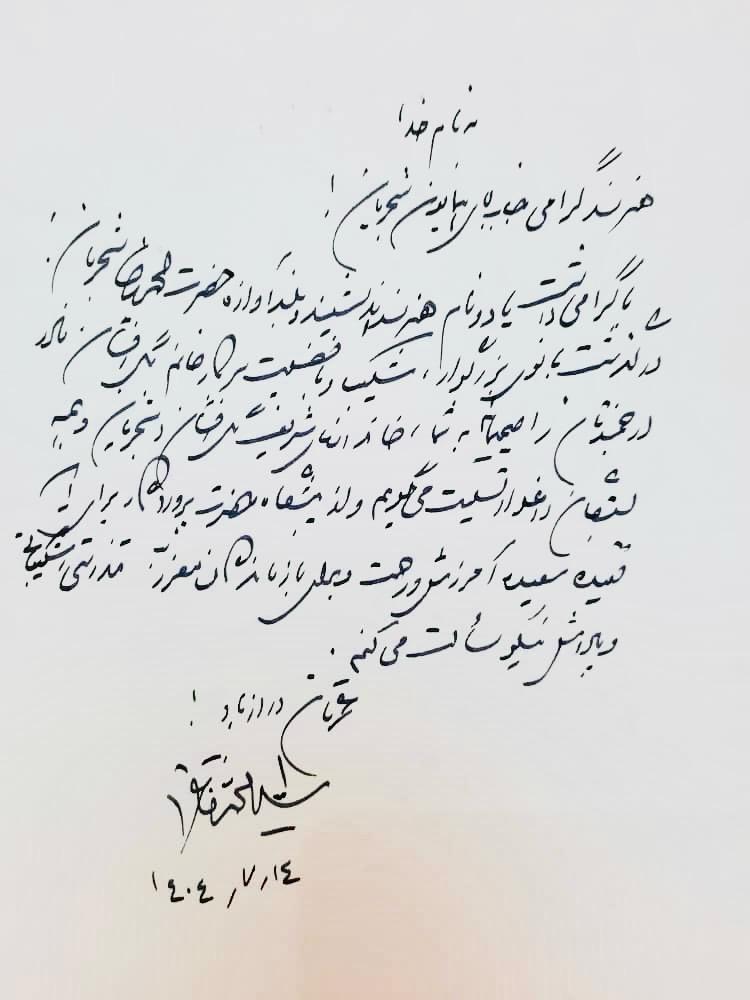 به نام خدا
هنرمند گرامی جناب آقای همایون شجریان!
با گرامی‌داشت یاد و نام هنرمند اندیشمند و بلندآوازه حضرت محمدرضا شجریان؛
درگذشت بانوی بزرگوار، شکیبا و با فضیلت سرکار خانم گل‌افشان مادر
ارجمندتان را صمیمانه به شما، خاندان شریف گل‌افشان و شجریان و همه
داغدار تسلیت می‌گویم و از پیشگاه حضرت پروردگار برای آن
فقیده سعیده آمرزش و رحمت و برای بازماندگان معزز تندرستی، شکیبایی
و پاداش نیکو مسألت می‌کنم.
عمرتان دراز باد!
سید محمد خاتمی
۱۴ر۷ر۱۴۰۴